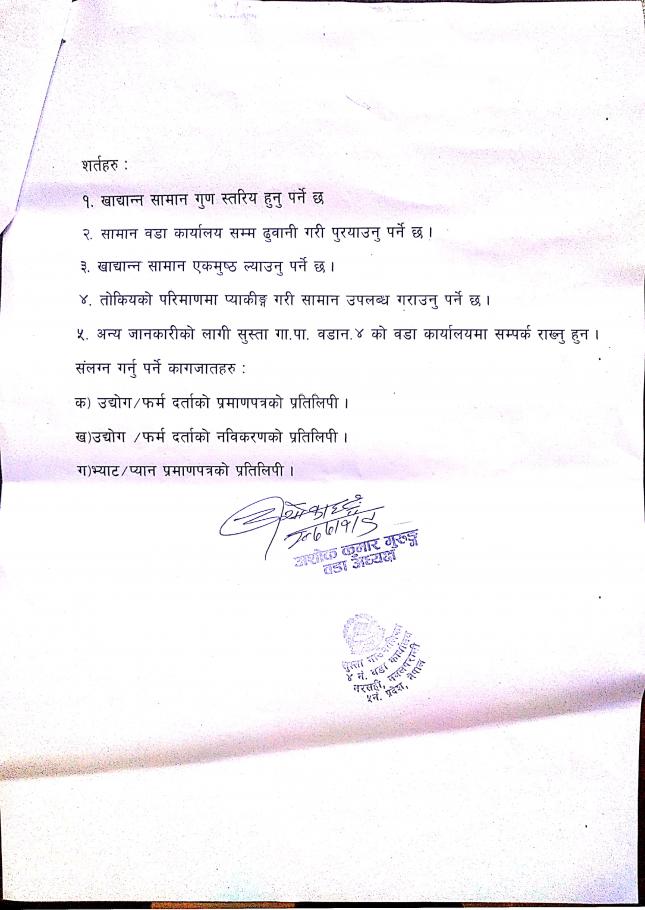 शर्तहरु :
१. खाद्यान्न सामान गुण स्तरिय हुनु पर्ने छ
२. सामान वडा कार्यालय सम्म ढुवानी गरी पुरयाउनु पर्ने छ ।
३. खाद्यान्न सामान एकमुष्ठ ल्याउनु पर्ने छ ।
४. तोकियको परिमाणमा प्याकीङ्ग गरी सामान उपलब्ध गराउनु पर्ने छ ।
५. अन्य जानकारीको लागी सुस्ता गा.पा. वडान.४ को वडा कार्यालयमा सम्पर्क राख्नु हुन ।
संलग्न गर्नु पर्ने कागजातहरु :
क) उद्योग/फर्म दर्ताको प्रमाणपत्रको प्रतिलिपी ।
ख)उद्योग /फर्म दर्ताको नविकरणको प्रतिलिपी ।
ग)भ्याट/प्यान प्रमाणपत्रको प्रतिलिपी ।
अशोक कुमार गुरुङ्ग
वडा अध्यक्ष
सुस्ता गाउँपालिका
४ नं. वडा कार्यालय
नवलपरासी
प्रदेश, नेपाल